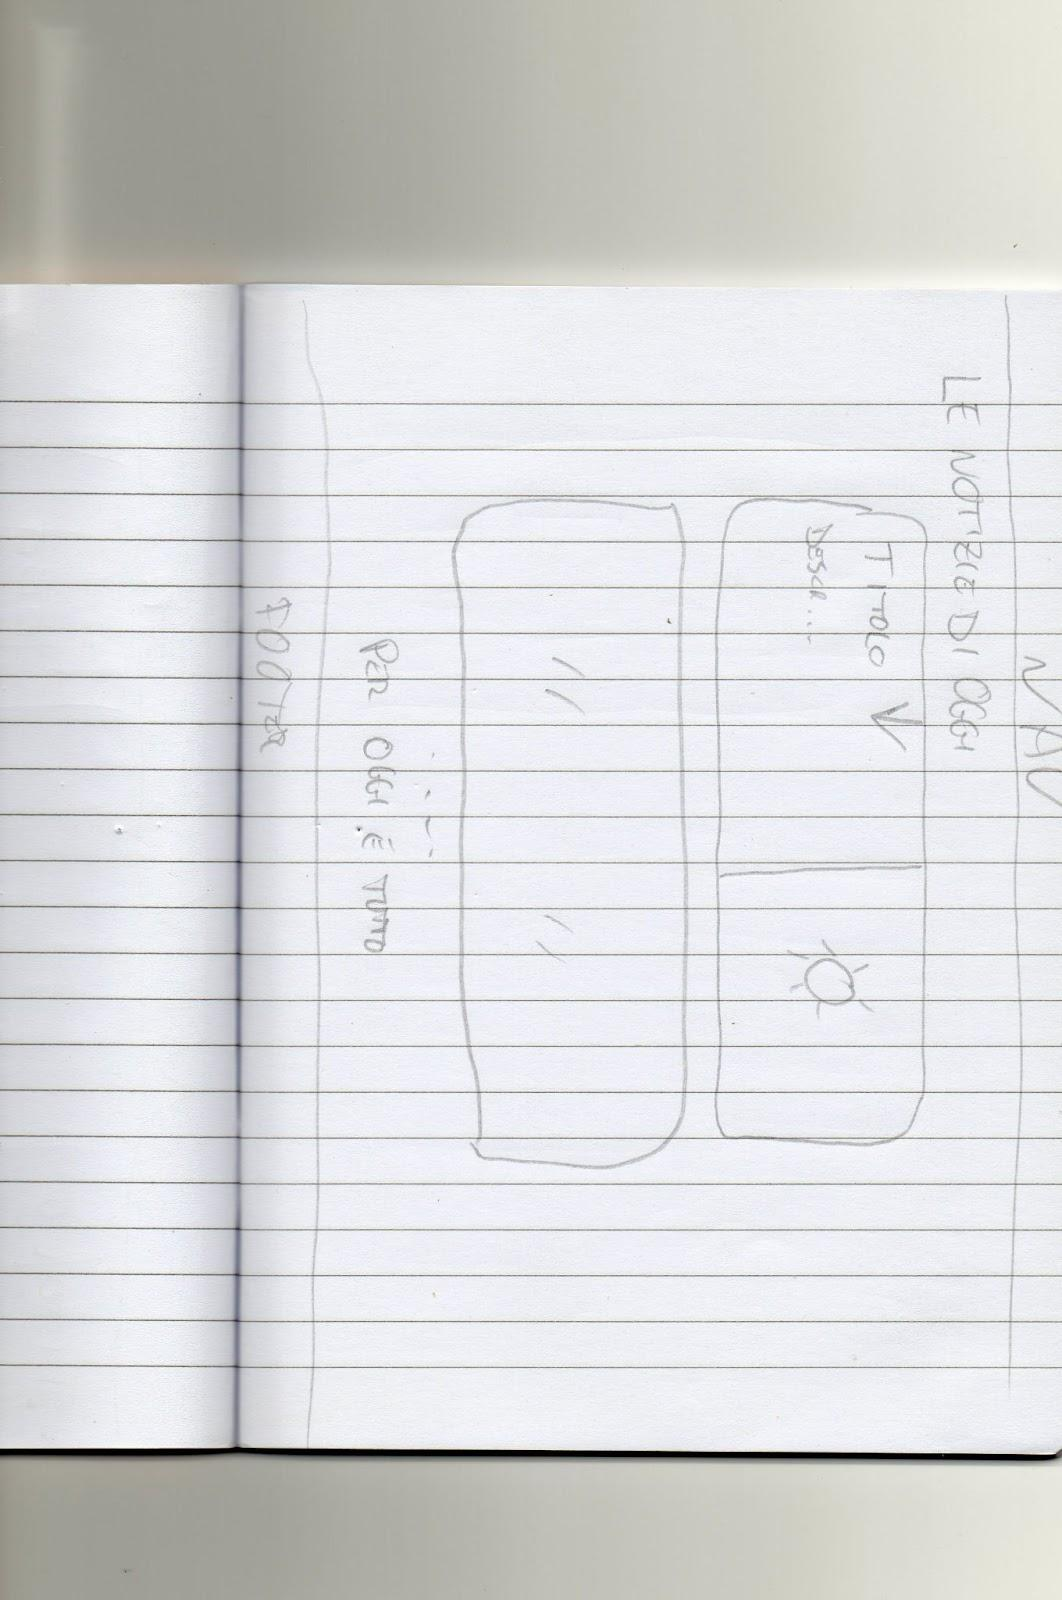 NAV
LE NOTIZIE DI OGGI
TITOLO
DESCR...
// //
...
PER OGGI É TUTTO
FOOTER